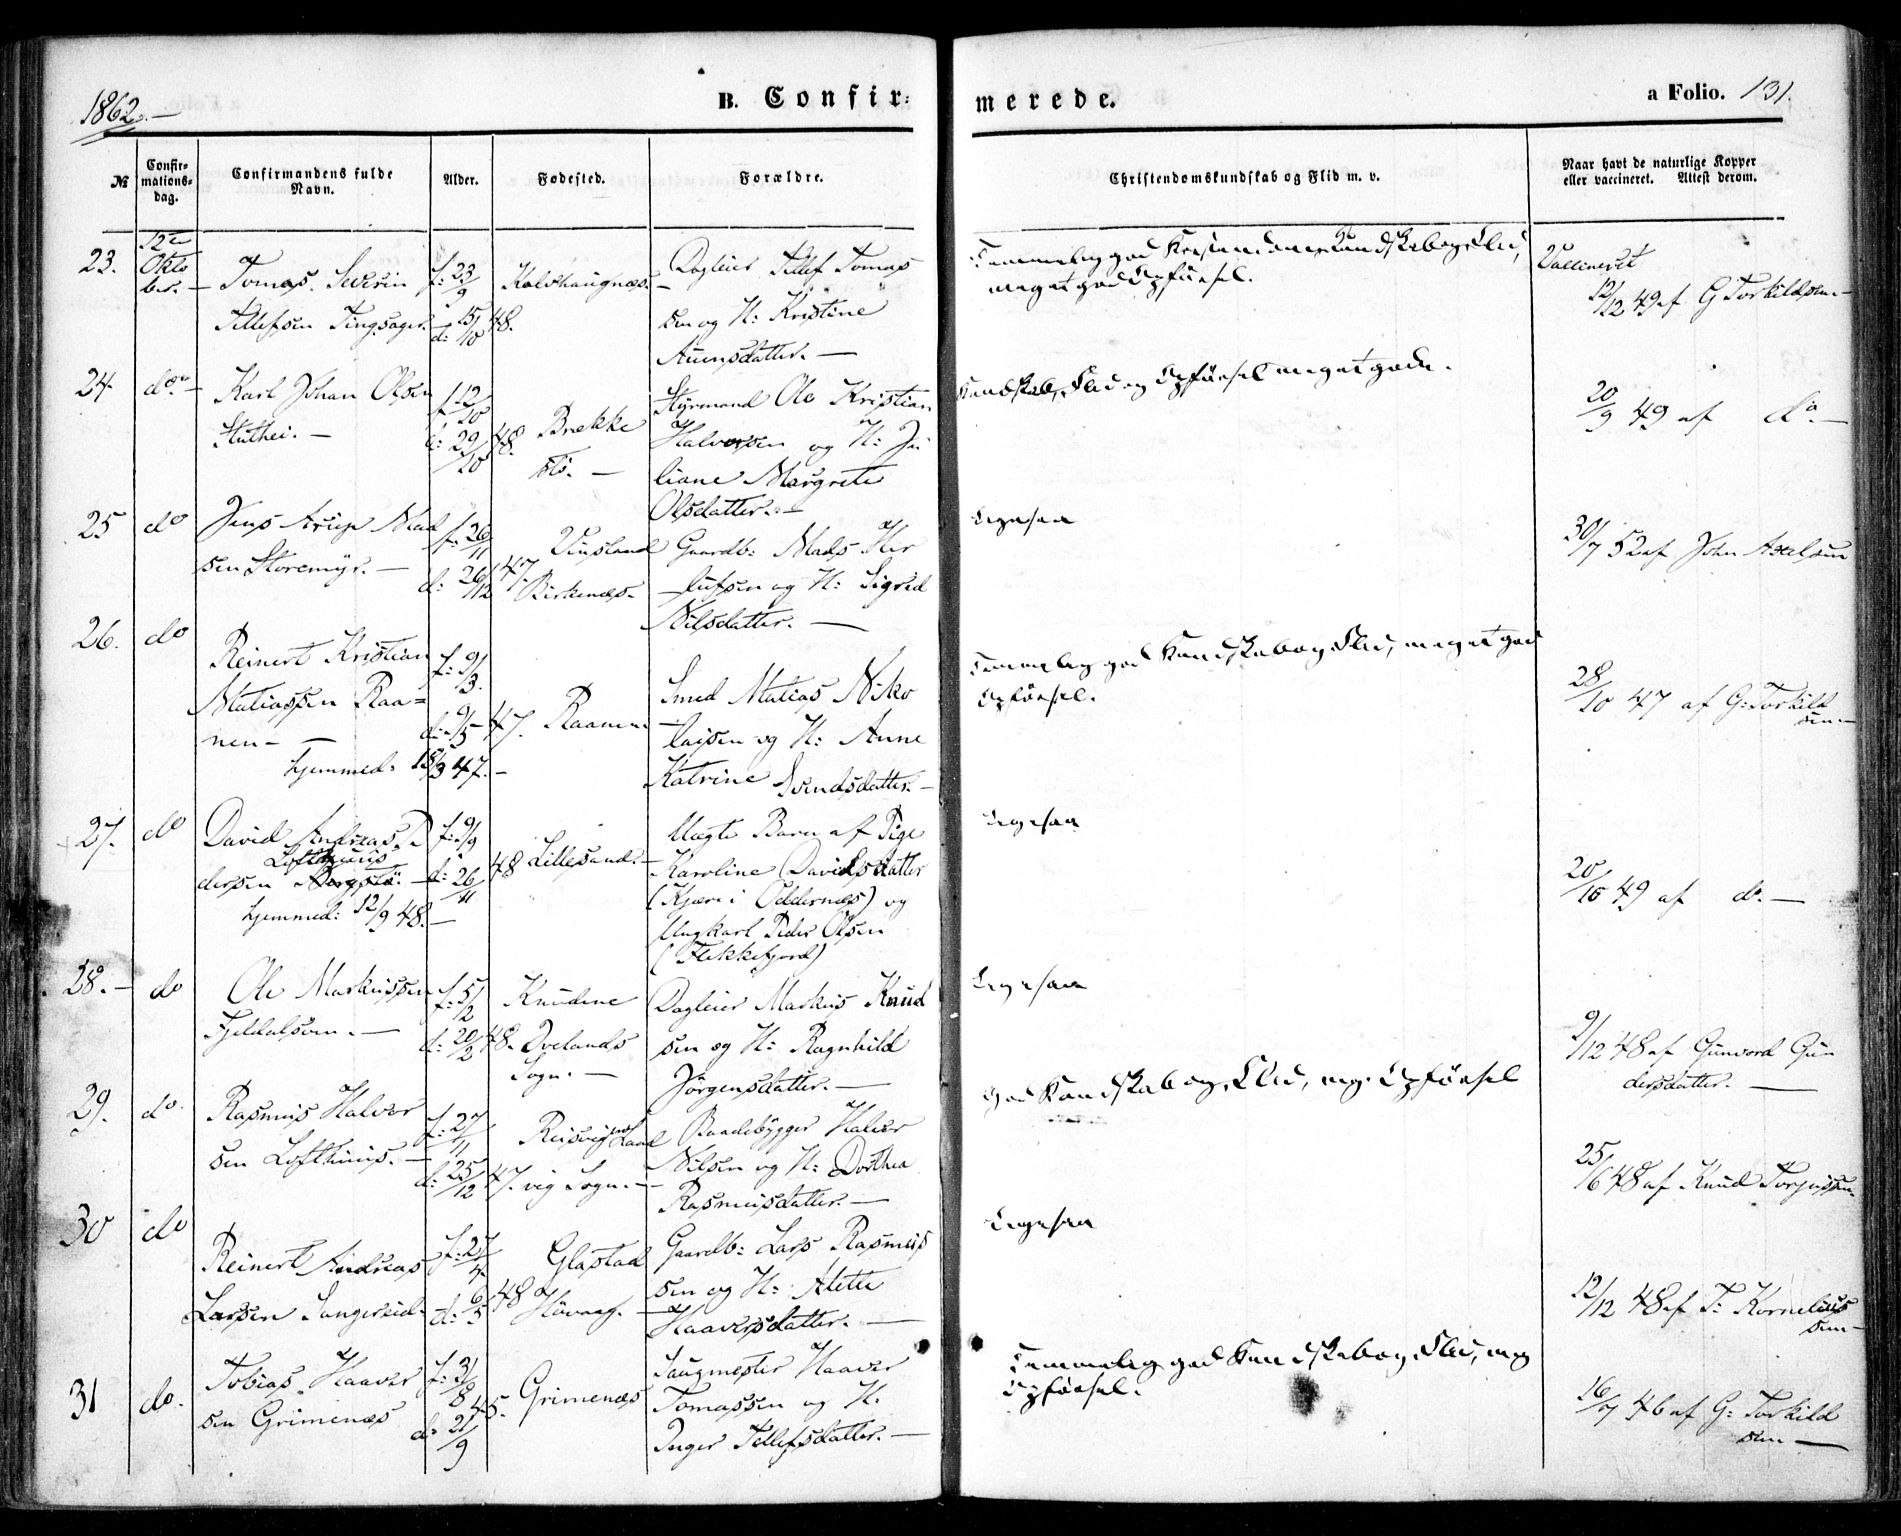 1862.—
B. Confir=
merede.
a Folio. 131.
№
Confir=
mations=
dag.
Confirmandens fulde
Navn.
Alder.
Fødested.
Forældre.
Christendomskundskab og Flid m. v.
Naar havt de naturlige Kopper
eller vaccineret. Attest derom.
23.
12te
Okto
ber.—
Tomas Severin
Tellefsen Tingsager.
f: 23/9
d: 15/10 48.
Kalvhaugnæs.
Dagleier Tellef Tomas
sen og H: Kristine
Auensdatter.—
Temmelig god Kristendomskundskab og Flid,
meget god Opførsel.
Vaccineret
12/12 49 af G Torkildsen.—
24.
do.—
Karl Johan Olsen
Stuthei.—
f: 12/10
d: 29/10 48.
Brække
stö.—
Styrmand Ole Kristian
Halvorsen og H: Ju
liane Margrete
Olsdatter.—
Kundskab, Flid og Opførsel meget gode.
20/9 49 af do.—
25
do
Jens Arup Mad
sen Storemyr.—
f: 26/11
d: 26/12 47.
Vinsland
Birkenæs.
Gaardb: Mads Her
lufsen og H: Sigrid
Nilsdatter.—
Ligesaa
30/7 52 af John Axelsen
26.
do
Reinert Kristian
Matiassen Raa=
nen.—
hjemmed: 18/3 47.—
f: 9/3.
d: 9/5 47.
Raanen.
Smed Matias Niko
laisen og H: Anne
Katrine Svendsdatter.—
Temmelig god Kundskab og Flid, meget god
Opførsel.
28/10 47 af G: Torkild
sen.—
27.
do
David Andreas P
Lofthuus
dersen
hjemmed: 12/9 48.—
f: 9/9
d: 26/11 48
Lillesand.—
Uægte Barn af Pige
Karoline Davidsdatter
(Kjære i Oddernæs) og
Ungkarl Peder Olsen
(Flekkefjord)
Ligesaa
20/10 49 af do.—
28.—
do
Ole Markussen
Fjeldalsven.—
f: 5/2
d: 20/2 48.
Knudene
Ovelands
Sogn.—
Dagleier Markus Knud
sen og H: Ragnhild
Jörgensdatter.—
Ligesaa
9/12 48 af Gunvord Gun
dersdatter.—
29.
do.
Rasmus Halvor
sen Lofthuus.—
f: 27/11
d: 25/12 47.
Reisvig Land
vig Sogn.—
Baadebygger Halvor
Nilsen og H: Dorthea
Rasmusdatter.—
god Kundskab og Flid, mg. Opførsel
25/6 48 af Knud Torjussen.
30
do
Reinert Andreas
Larsen Sangereid.
f: 27/4
d: 6/5 48
Glastad
Hövaag.—
Gaardb: Lars Rasmus
sen og H: Alette
Haaversdatter.—
Ligesaa
12/12 48 af T: Kornelius
sen—
31
do.
Tobias Haaver
sen Grimenæs
f: 31/8
d: 21/9 45.
Grimenæs
Saugmester Haaver
Tomassen og H:
Inger Tellefsdatter.—
Temmelig god Kundskab og Flid, mg
Opførsel.
16/7 46 af G: Torkild
sen—